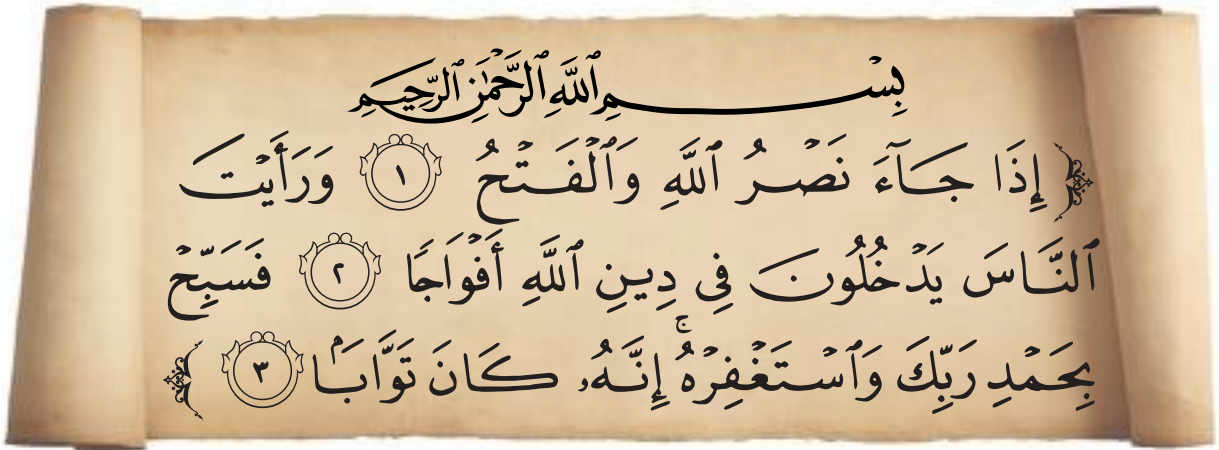 بِسۡمِ ٱللَّهِ ٱلرَّحۡمَٰنِ ٱلرَّحِيمِ
﴿ إِذَا جَآءَ نَصۡرُ ٱللَّهِ وَٱلۡفَتۡحُ ١ وَرَأَيۡتَ
ٱلنَّاسَ يَدۡخُلُونَ فِي دِينِ ٱللَّهِ أَفۡوَاجٗا ٢ فَسَبِّحۡ
بِحَمۡدِ رَبِّكَ وَٱسۡتَغۡفِرۡهُۚ إِنَّهُۥ كَانَ تَوَّابَۢا ٣ ﴾